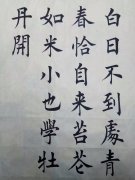 白日不到處青
春恰自来苔花
如米小也學牡
丹開